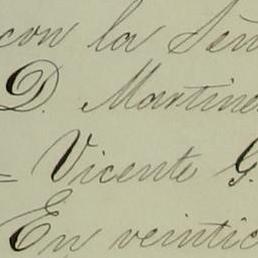 con la Señ
D. Martine
= Vicente G.
En veintic